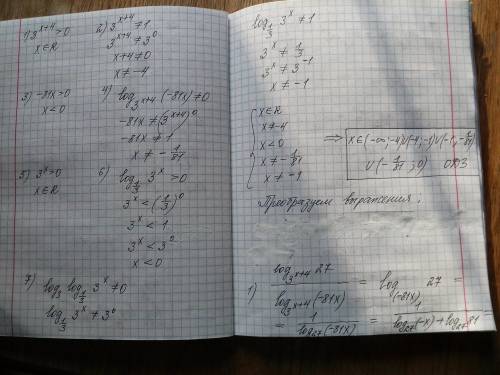 1) 3^{x+4} > 0
x ∈ R
2) 3^{x+4} ≠ 1
3^{x+4} ≠ 3^0
x+4 ≠ 0
x ≠ -4
3) -81x > 0
x < 0
4) log_{3^{x+4}} (-81x) ≠ 0
-81x ≠ (3^{x+4})^0
-81x ≠ 1
x ≠ -1/81
5) 3^x > 0
x ∈ R
6) log_{1/3} 3^x > 0
3^x < (1/3)^0
3^x < 1
3^x < 3^0
x < 0
7) log_3 log_{1/3} 3^x ≠ 0
log_{1/3} 3^x ≠ 3^0
log_{1/3} 3^x ≠ 1
3^x ≠ 1/3
3^x ≠ 3^{-1}
x ≠ -1
{ x ∈ R
x ≠ -4
x < 0
x ≠ -1/81
x ≠ -1
⇒ x ∈ (-∞; -4) ∪ (-4; -1) ∪ (-1; -1/81)
∪ (-1/81; 0) ОДЗ
Преобразуем выражения.
1) log_{3^{x+4}} 27 / log_{3^{x+4}} (-81x) = log_{(-81x)} 27 =
= 1 / log_{27}(-81x) = 1 / log_{27}(-x) + log_{27} 81 =